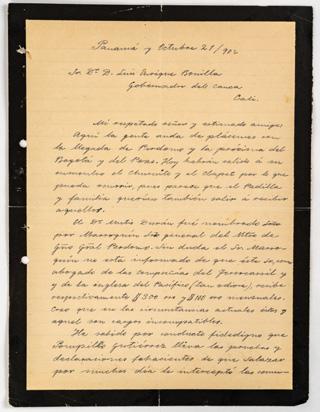 Panamá y Octubre 21/902
Sr. Dr. D. Luis Enrique Bonilla
Gobernador del Cauca
Cali.
Mi respetado señor y estimado amigo:
Aquí la gente anda de plácemes con
la llegada de Perdomo y la próxima del
Bogotá y del Paez. Hoy habrán salido á su
encuentro el Chucuito y el Clapet por lo que
pueda ocurrir, pues parece que el Padilla
y familia querían también salir á recibir
aquellos.
El Dr. Durán fué nombrado
por Marroquín general del
Gral Perdomo. Sin duda el Sr. Marro-
quín no está informado de que éste Sr, como
abogado de las compañías del Ferrocarril y
de la inglesa del Pacífico (tan odiosa), recibe
respectivamente $ 300 oro y $ 100 oro mensuales.
Creo que en las circunstancias actuales éste y
aquel son cargos incompatibles.
He sabido por conducto fidedigno que
Pompilio Gutiérrez lleva las pruebas y
declaraciones fehacientes de que Salazar
por muchos días le interceptó las comu-